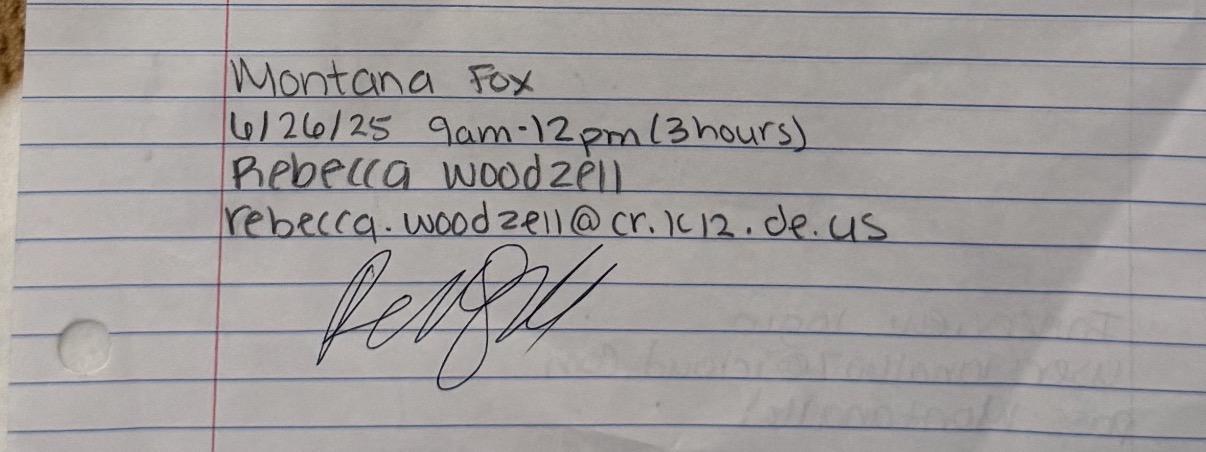 Montana Fox
6/26/25 9am-12pm (3 hours)
Rebecca Woodzell
rebecca.woodzell@cr.k12.de.us